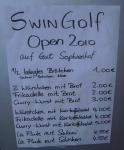 SwinGolf
Open 2010
auf Gut Sophienhof
1/2 belegtes Brötchen 1,00€
2 Würstchen mit Brot
Frikadelle mit Brot 2.00€
Curry-Wurst mit Brot
Würstchen mit Kartoffelsalat
Frikadelle mit Kartoffelsalat
Curry-Wurst mit Kartoffelsalat
La Flute mit Salami
La Flute mit Schinken